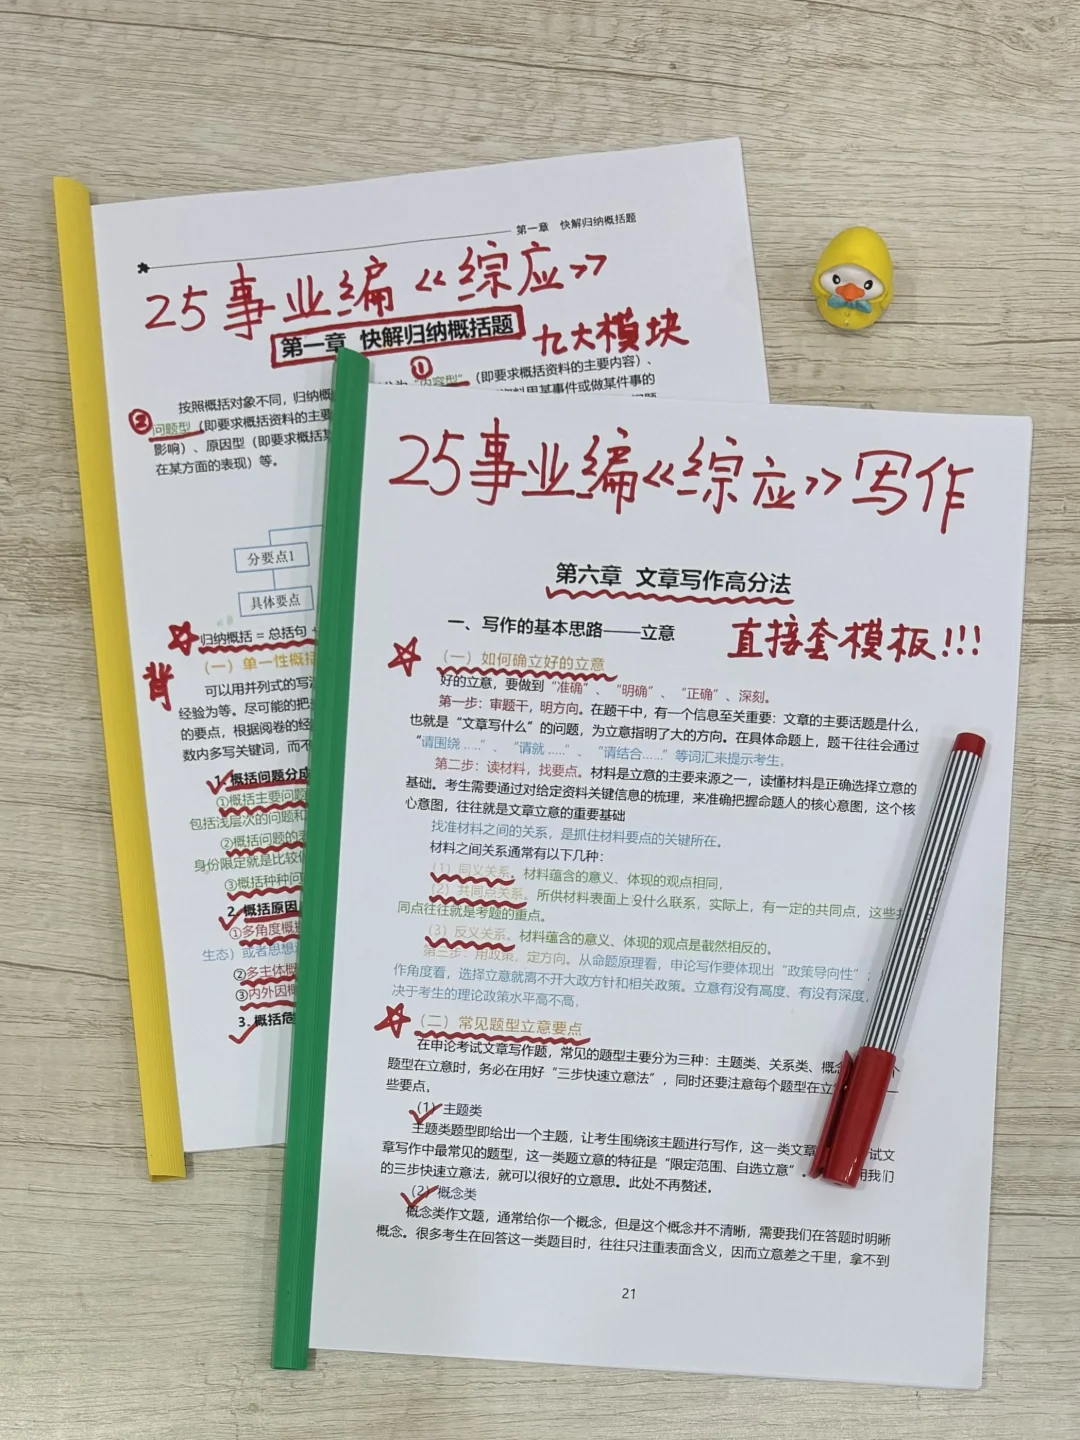 第一章 快解归纳概括题
25事业编《综应》
第一章 快解归纳概括题
九大模块
①
按照概括对象不同，归纳概
“内容型”（即要求概括资料的主要内容）、
②
问题型（即要求概括资料的主要
料里某事件或做某件事的
影响）、原因型（即要求概括某
在某方面的表现）等。
分要点1
具体要点
归纳概括 = 总括句 +
（一）单一性概括
背
可以用并列式的写
经验为等。尽可能的把
的要点，根据阅卷的经
数内多写关键词，而不
1. 概括问题分成
①概括主要问题
包括浅层次的问题和
②概括问题的表
身份限定就是比较
③概括种种问
2. 概括原因
①多角度概括
生态）或者思想
②多主体概
③内外因概
3. 概括危
25事业编《综应》写作
第六章 文章写作高分法
一、写作的基本思路——立意
直接套模板!!!
（一）如何确立好的立意
好的立意，要做到“准确”、“明确”、“正确”、深刻。
第一步：审题干，明方向。在题干中，有一个信息至关重要：文章的主要话题是什么，
也就是“文章写什么”的问题，为立意指明了大的方向。在具体命题上，题干往往会通过
“请围绕.....”、“请就.....”、“请结合.....”等词汇来提示考生。
第二步：读材料，找要点。材料是立意的主要来源之一，读懂材料是正确选择立意的
基础。考生需要通过对给定资料关键信息的梳理，来准确把握命题人的核心意图，这个核
心意图，往往就是文章立意的重要基础
找准材料之间的关系，是抓住材料要点的关键所在。
材料之间关系通常有以下几种：
（1）同义关系。材料蕴含的意义、体现的观点相同，
（2）共同点关系。所供材料表面上没什么联系，实际上，有一定的共同点，这些共
同点往往就是考题的重点。
（3）反义关系。材料蕴含的意义、体现的观点是截然相反的。
第三步：用政策，定方向。从命题原理看，申论写作要体现出“政策导向性”；
作角度看，选择立意就离不开大政方针和相关政策。立意有没有高度、有没有深度，
决于考生的理论政策水平高不高，
（二）常见题型立意要点
在申论考试文章写作题，常见的题型主要分为三种：主题类、关系类、概念 个
题型在立意时，务必在用好“三步快速立意法”，同时还要注意每个题型在立 一
些要点，
（1）主题类
主题类题型即给出一个主题，让考生围绕该主题进行写作，这一类文章 试文
章写作中最常见的题型，这一类题立意的特征是“限定范围、自选立意”。 用我们
的三步快速立意法，就可以很好的立意思。此处不再赘述，
（2）概念类
概念类作文题，通常给你一个概念，但是这个概念并不清晰，需要我们在答题时明晰
概念。很多考生在回答这一类题目时，往往只注重表面含义，因而立意差之千里，拿不到
21